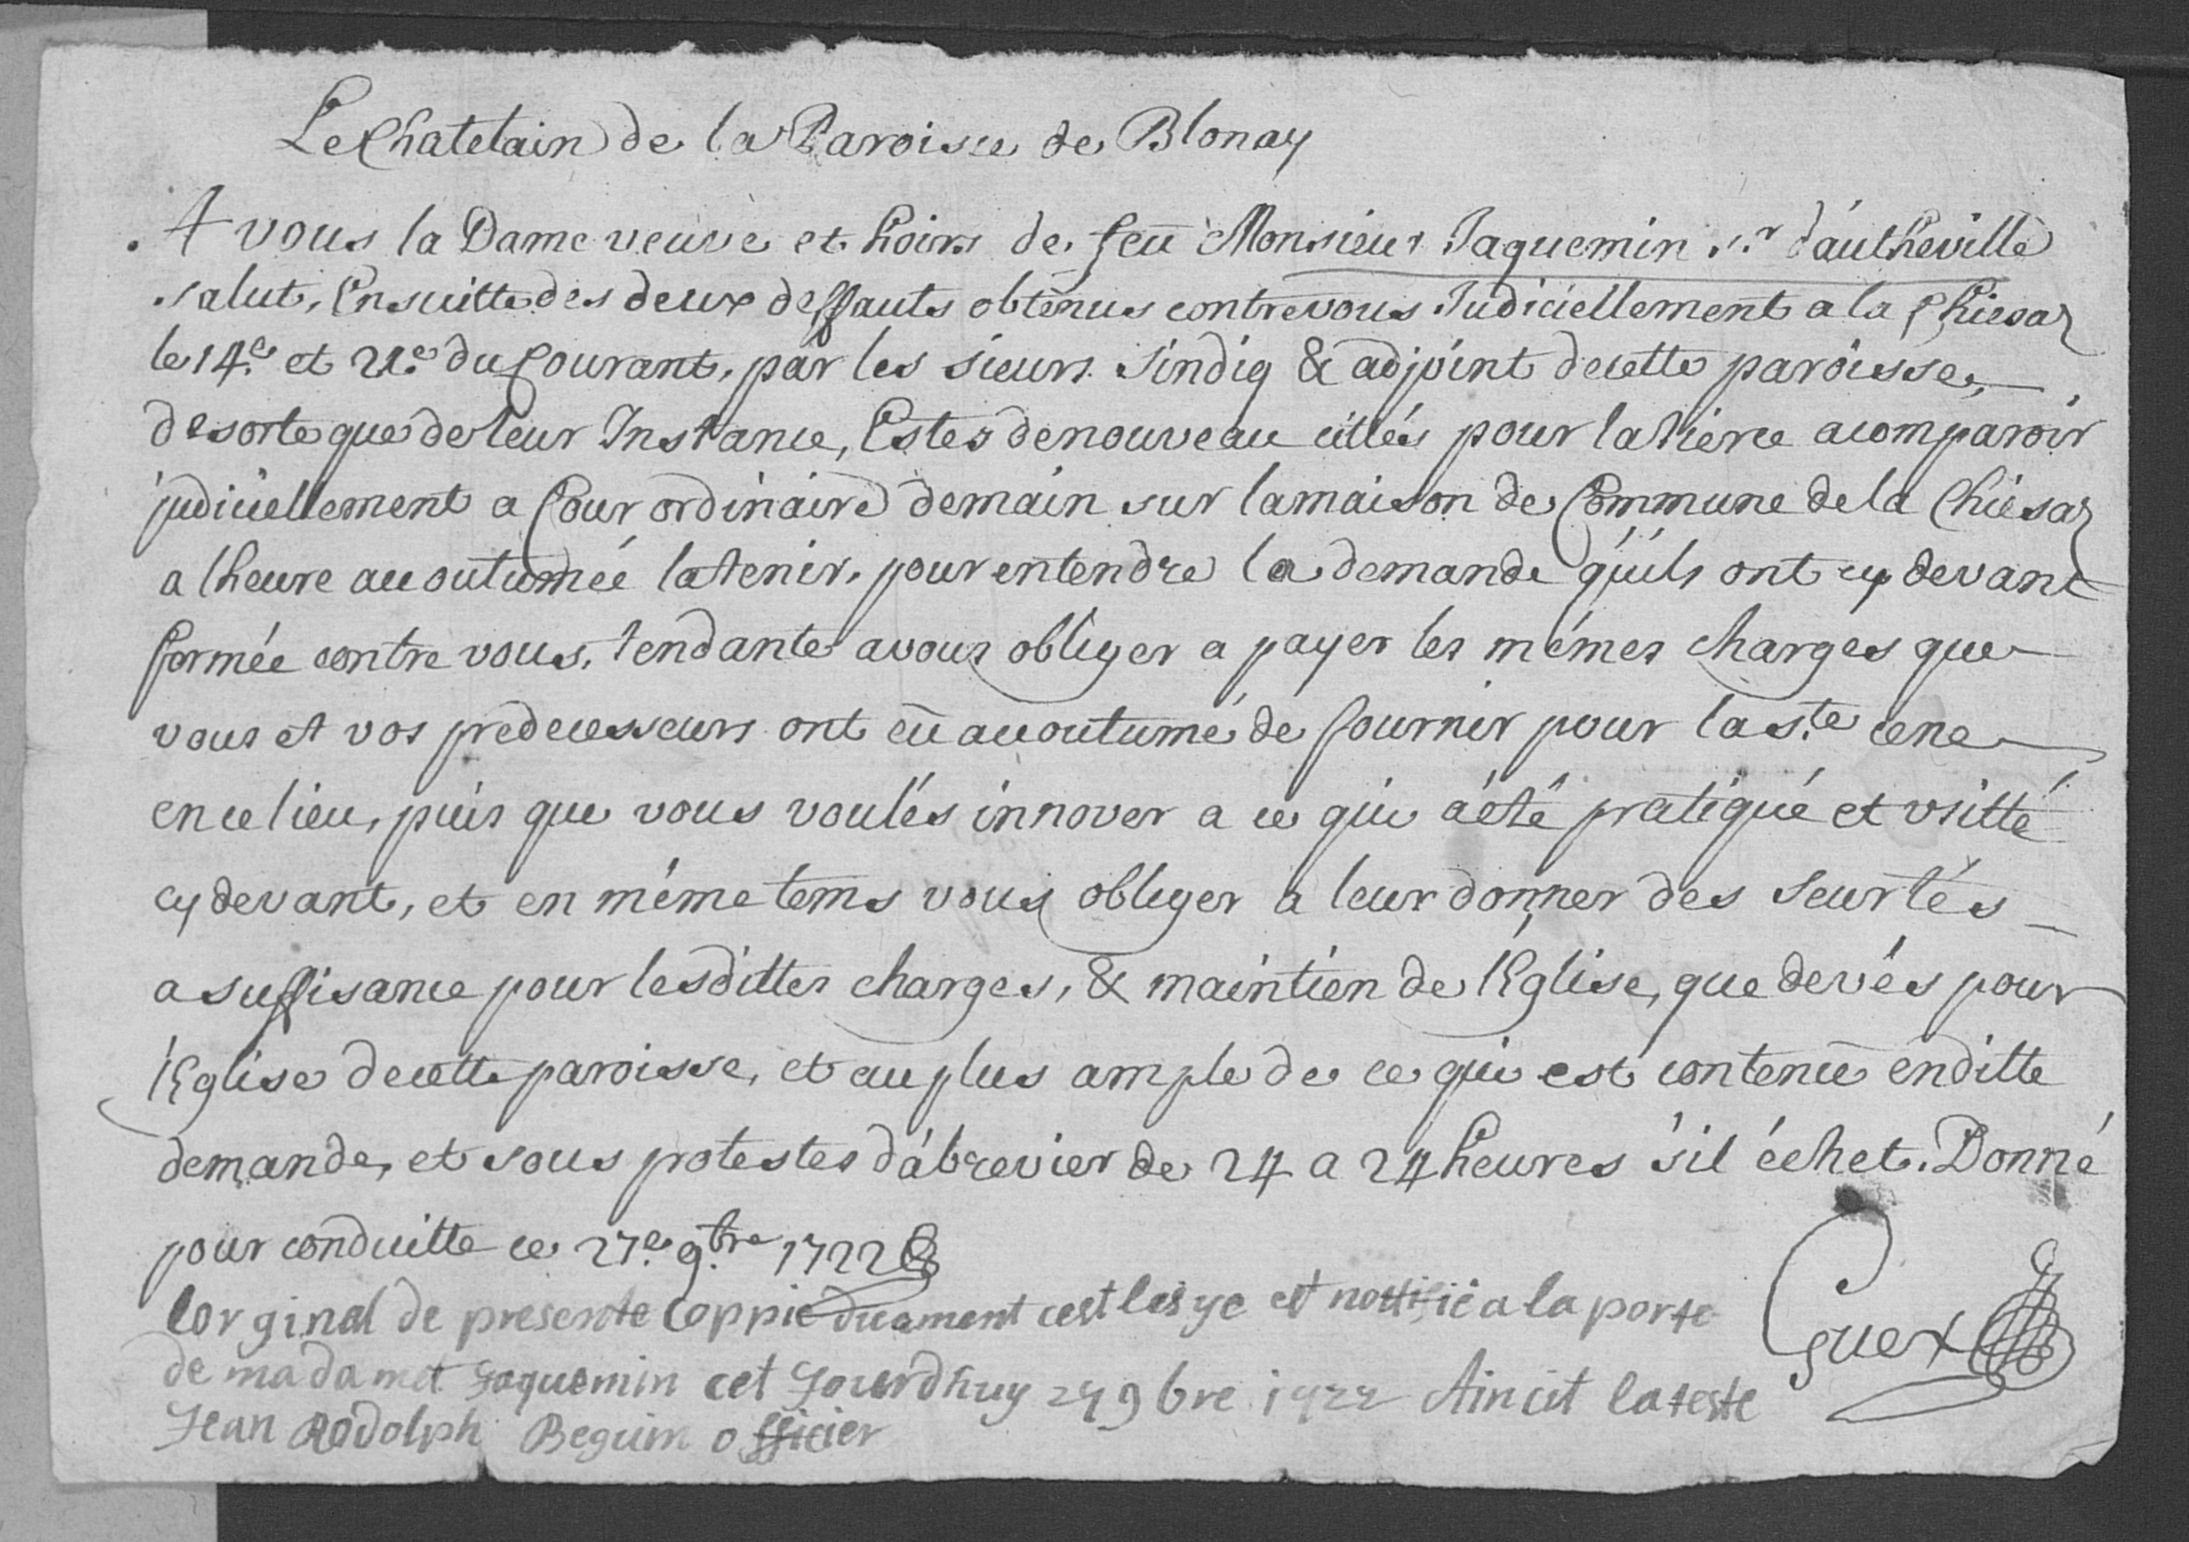 Le Chatelain de la Paroisse de Blonay
A vous la Dame veuve et hoirs de feu Monsieur Jaquemin sr d'autheville
salut, Ensuitte des deux deffauts obtenus contre vous Judiciellement a la Chiesaz
le 14e et 21e du Courant, par les sieurs sindiq & adjoint de cette paroisse,
de sorte que de leur Instance, Estes de nouveau cittés pour la tierce a comparoir
judiciellement a Cour ordinaire demain sur la maison de Commune de la Chiesaz
a lheure accoutumée la tenir, pour entendre la demande qu'ils ont cy devant
formée contre vous, tendante a vous obliger a payer les mémes charges que
vous et vos predecesseurs ont eü accoutumé de fournir pour la ste cene
en ce lieu, puis que vous voulés innover a ce qui a été pratiqué et usitté
cy devant, et en méme tems vous obliger a leur donner des seurtés
a suffisance pour lesdittes charges, & maintien de l'Eglise, que devés pour
l'Eglise de cette paroisse, et au plus ample de ce qui est contenu en ditte
demande, et sous protestes d'abrevier de 24 a 24 heures s'il échet. Donné
pour conduitte ce 27e 9bre 1722
Guex
lorginal de presente Coppie duement cest lesye et nottifié a la porte
de madamet Jaquemin cet Jourdhuy 27 9bre 1722 Aincit lateste
Jean Rodolph Beguin officier